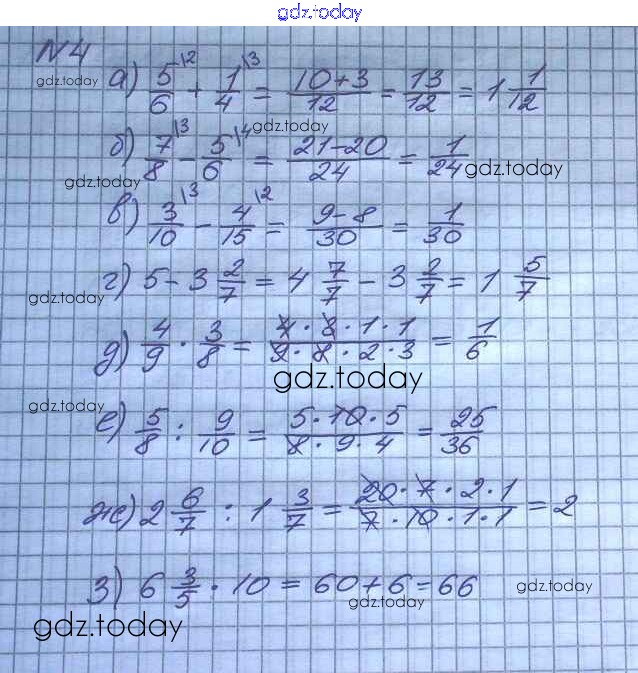 gdz.today
N4
а) 5/6 |2 + 1/4 |3 = 10+3/12 = 13/12 = 1 1/12
gdz.today
gdz.today
б) 7/8 |3 - 5/6 |4 = 21-20/24 = 1/24
gdz.today
gdz.today
в) 3/10 |3 - 4/15 |2 = 9-8/30 = 1/30
г) 5 - 3 2/7 = 4 7/7 - 3 2/7 = 1 5/7
gdz.today
д) 4/9 · 3/8 = 4·3·1·1/9·8·2·3 = 1/6
gdz.today
gdz.today
е) 5/8 : 9/10 = 5·10·5/8·9·4 = 25/36
ж) 2 6/7 : 1 3/7 = 20·7·2·1/7·10·1·1 = 2
з) 6 3/5 · 10 = 60+6 = 66
gdz.today
gdz.today
gdz.today